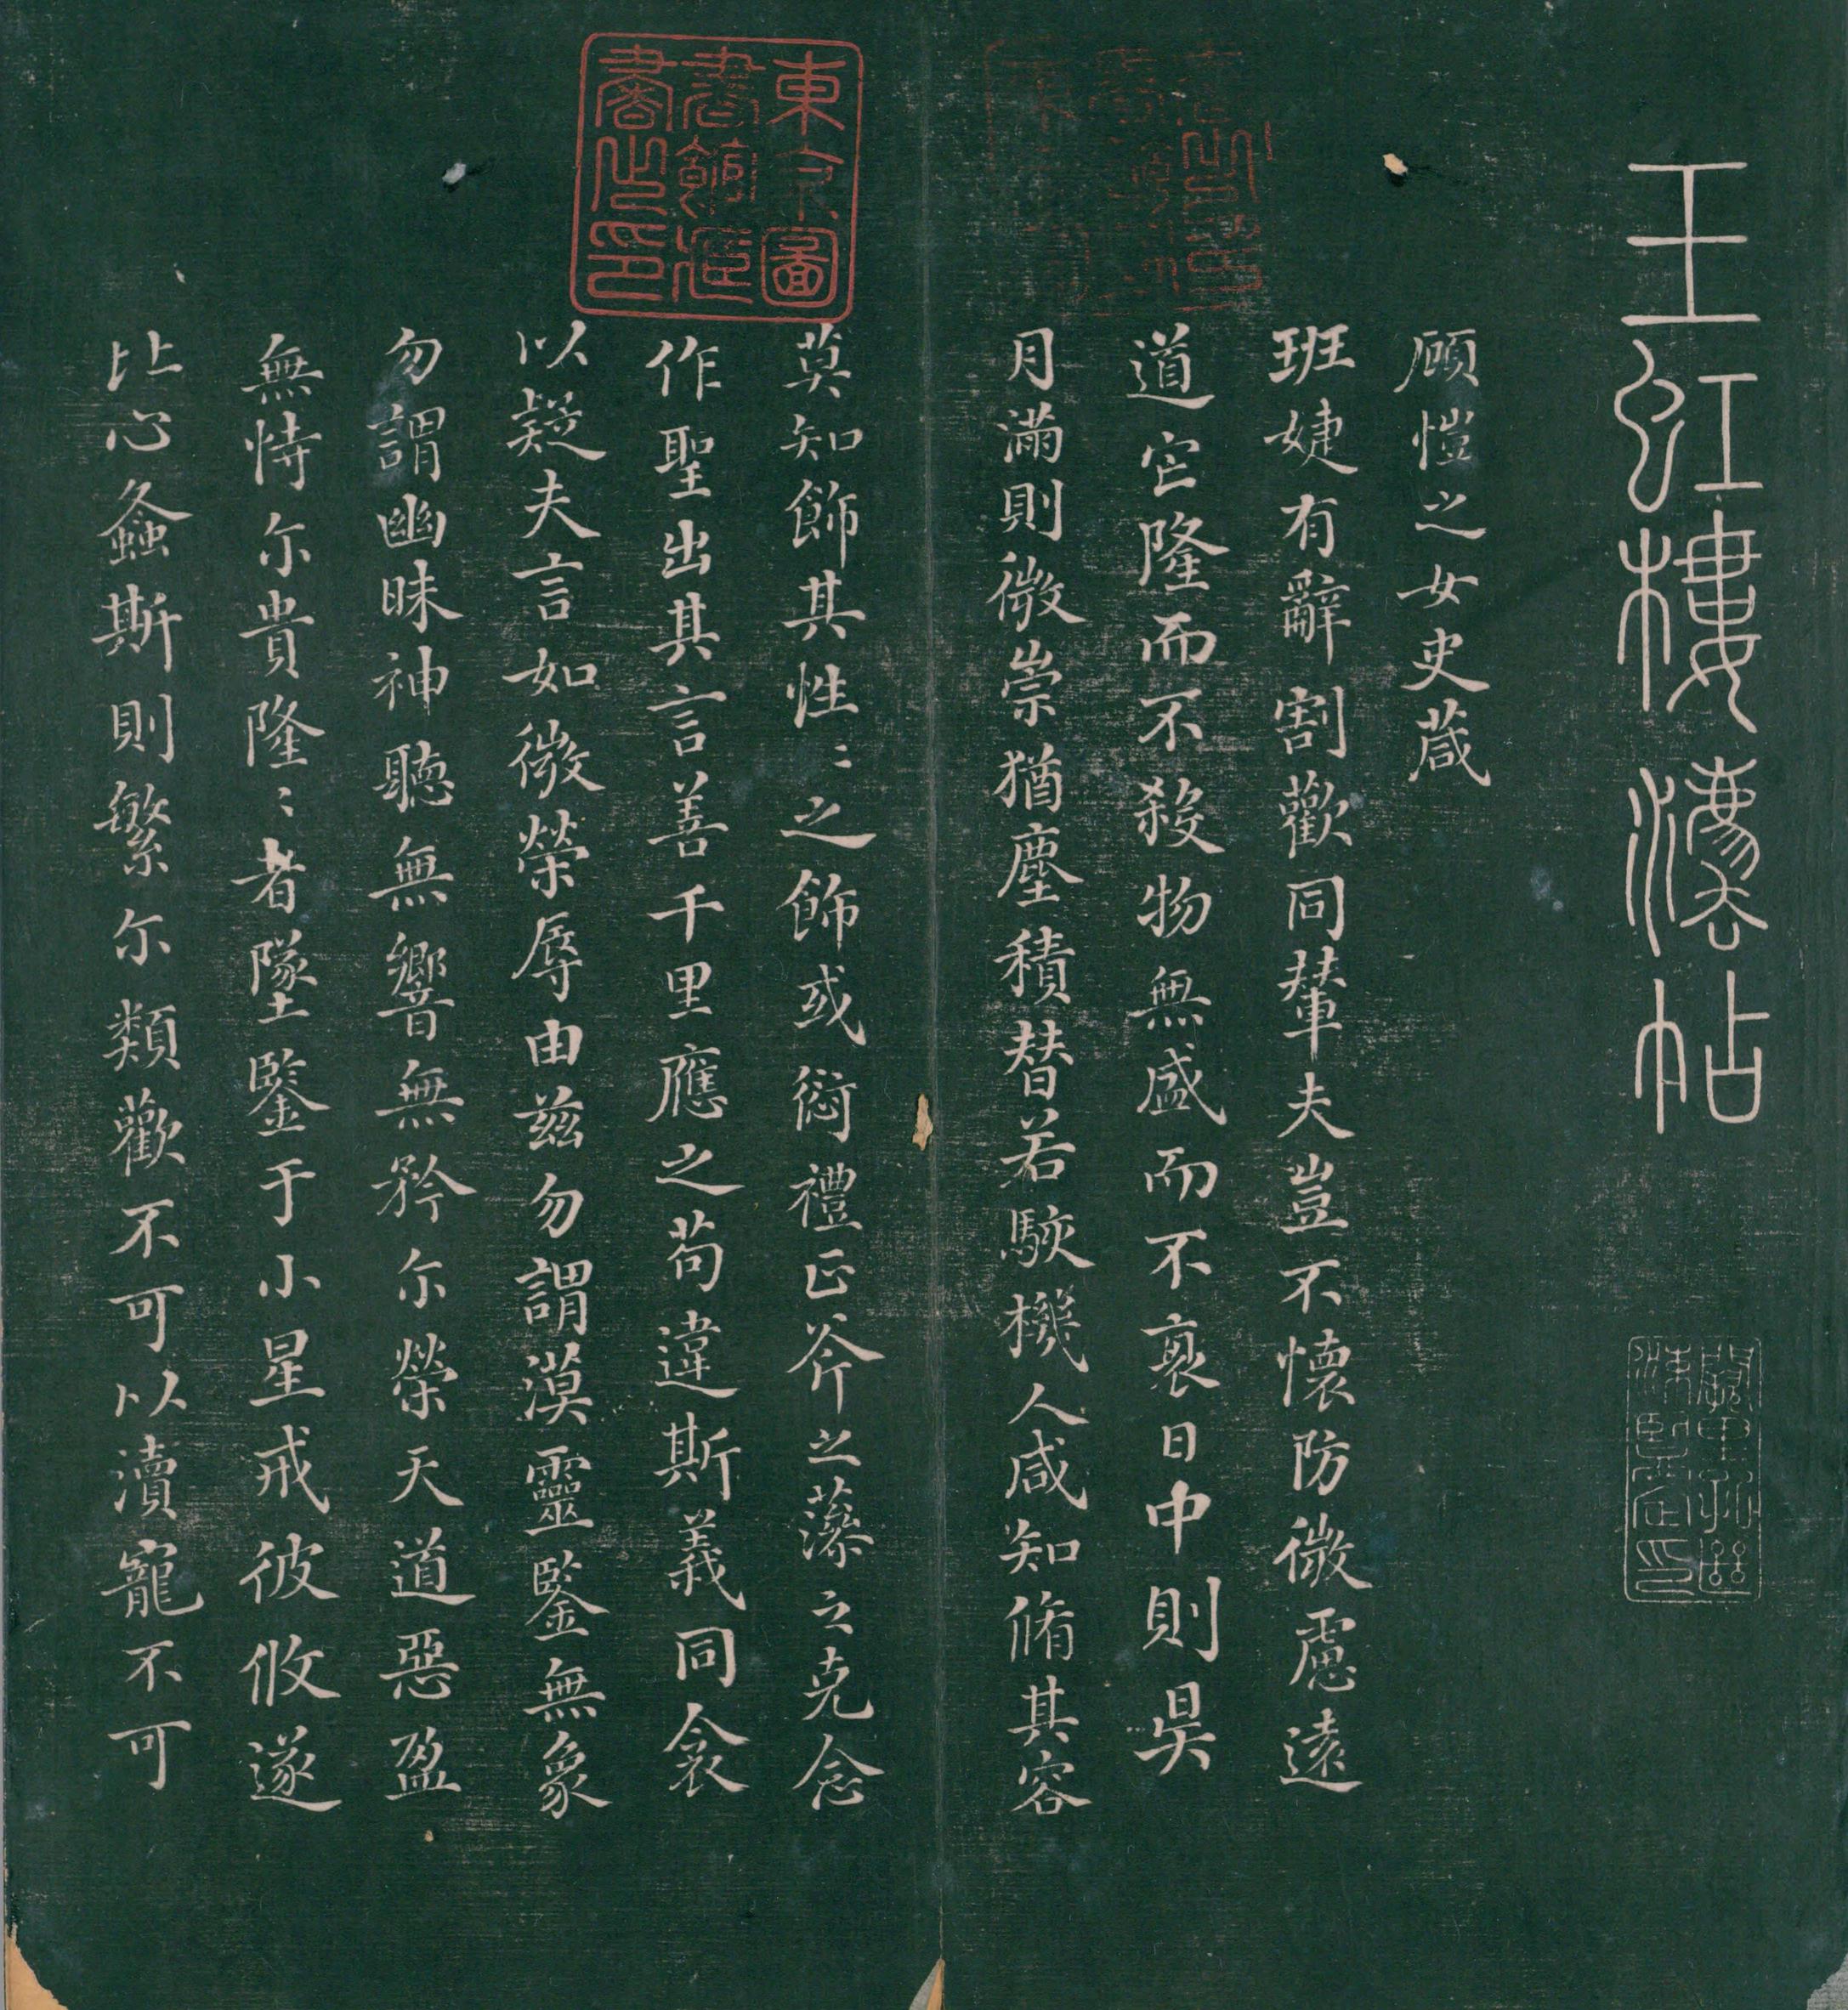 玉虹樓灋帖
顧愷之女史葴
班婕有辭割歡同輦夫豈不懷防微慮遠
道它隆而不殺物無盛而不衰日中則昃
月滿則微崇猶塵積替若駭機人咸知脩其容
東京圖書館藏書之印
莫知飾其性〻之飾或愆禮正斧之藻之克念
作聖出其言善千里應之苟違斯義同衾
以疑夫言如微榮辱由茲勿謂漠靈鑒無象
勿謂幽昧神聽無響無矜尓榮天道惡盈
無恃尓貴隆〻者墜鑒于小星戒彼攸遂
比心螽斯則繁尓類歡不可以瀆寵不可